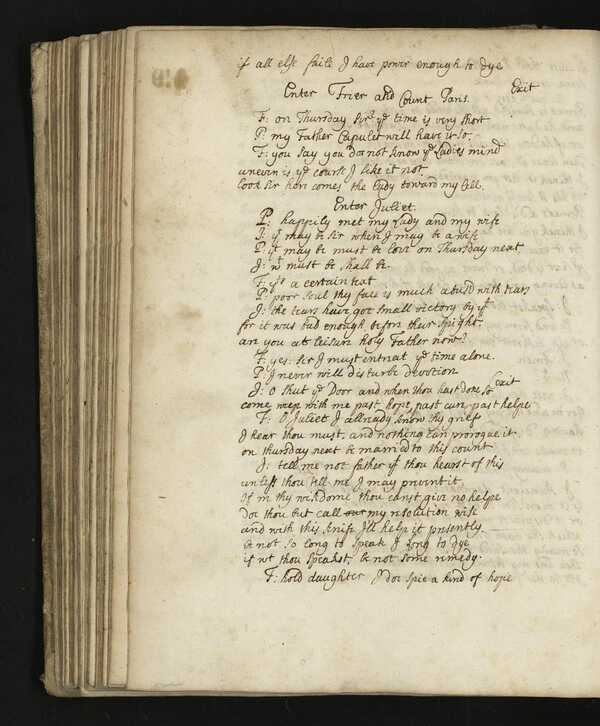 if all else faile I have power enough to dye
Exit
Enter Frier and Count Paris.
F: on Thursday Sir? ye time is very short
P: my Father Capulet will have it so,
F: you say you do not know ye Ladies mind
uneven is ye course I like it not
look sir here comes the lady toward my Cell.
Enter Juliet.
P: happily met my Lady and my wife
J: yt may be sir when I may be a wife
P: yt may be must be love on Thursday next
J: wt must be shall be.
F: yts a certain text
P: poor soul thy face is much abusd with tears
J: the tears have got small victory by yt
for it was bad enough before their spight.
are you at leisure holy Father now?
F: yes: sir I must entreat ye time alone.
P: I never will disturbe devotion
exit
J: O shut ye Door and when thou hast done so
come weep with me past hope, past cure, past helpe
F: O Juliet I allready know thy grief
I hear thou must, and nothing can prorogue it
on thursday next be married to this count
J: tell me not father yt thou hearst of this
unless thou tell me I may prevent it,
If in thy wisdome thou canst give no helpe
doe thou but call our my resolution wise
and with this knife I'll help it presently
be not so long to speak I long to dye
if wt thou speakst, be not some remedy.
F: hold daughter I doe spie a kind of hope